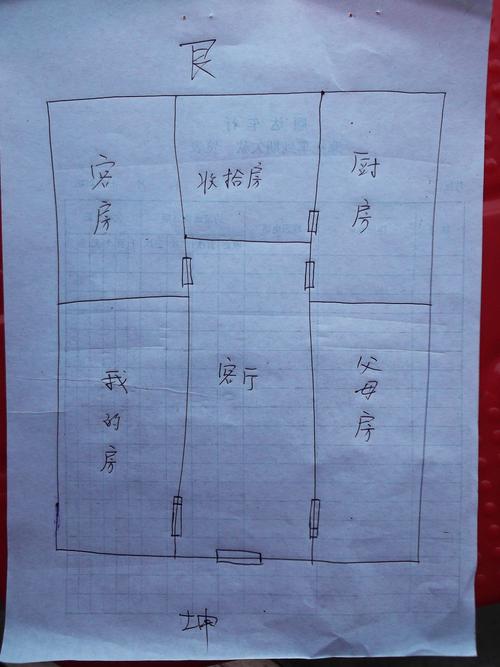 艮
客房
收拾房
厨房
我的房
客厅
父母房
坤